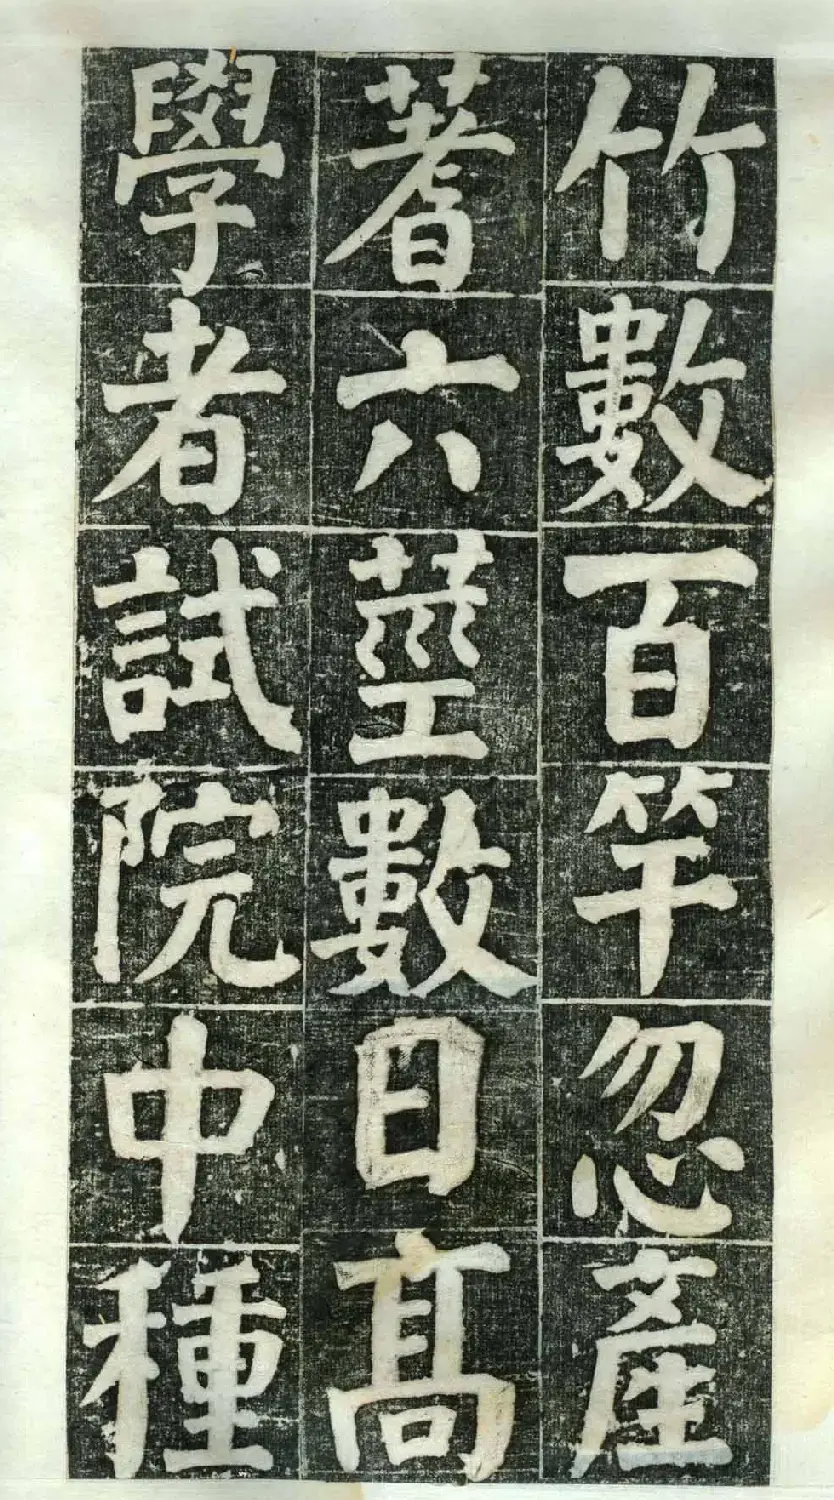 竹數百竿忽產
蓍六莖數日高
學者試院中種